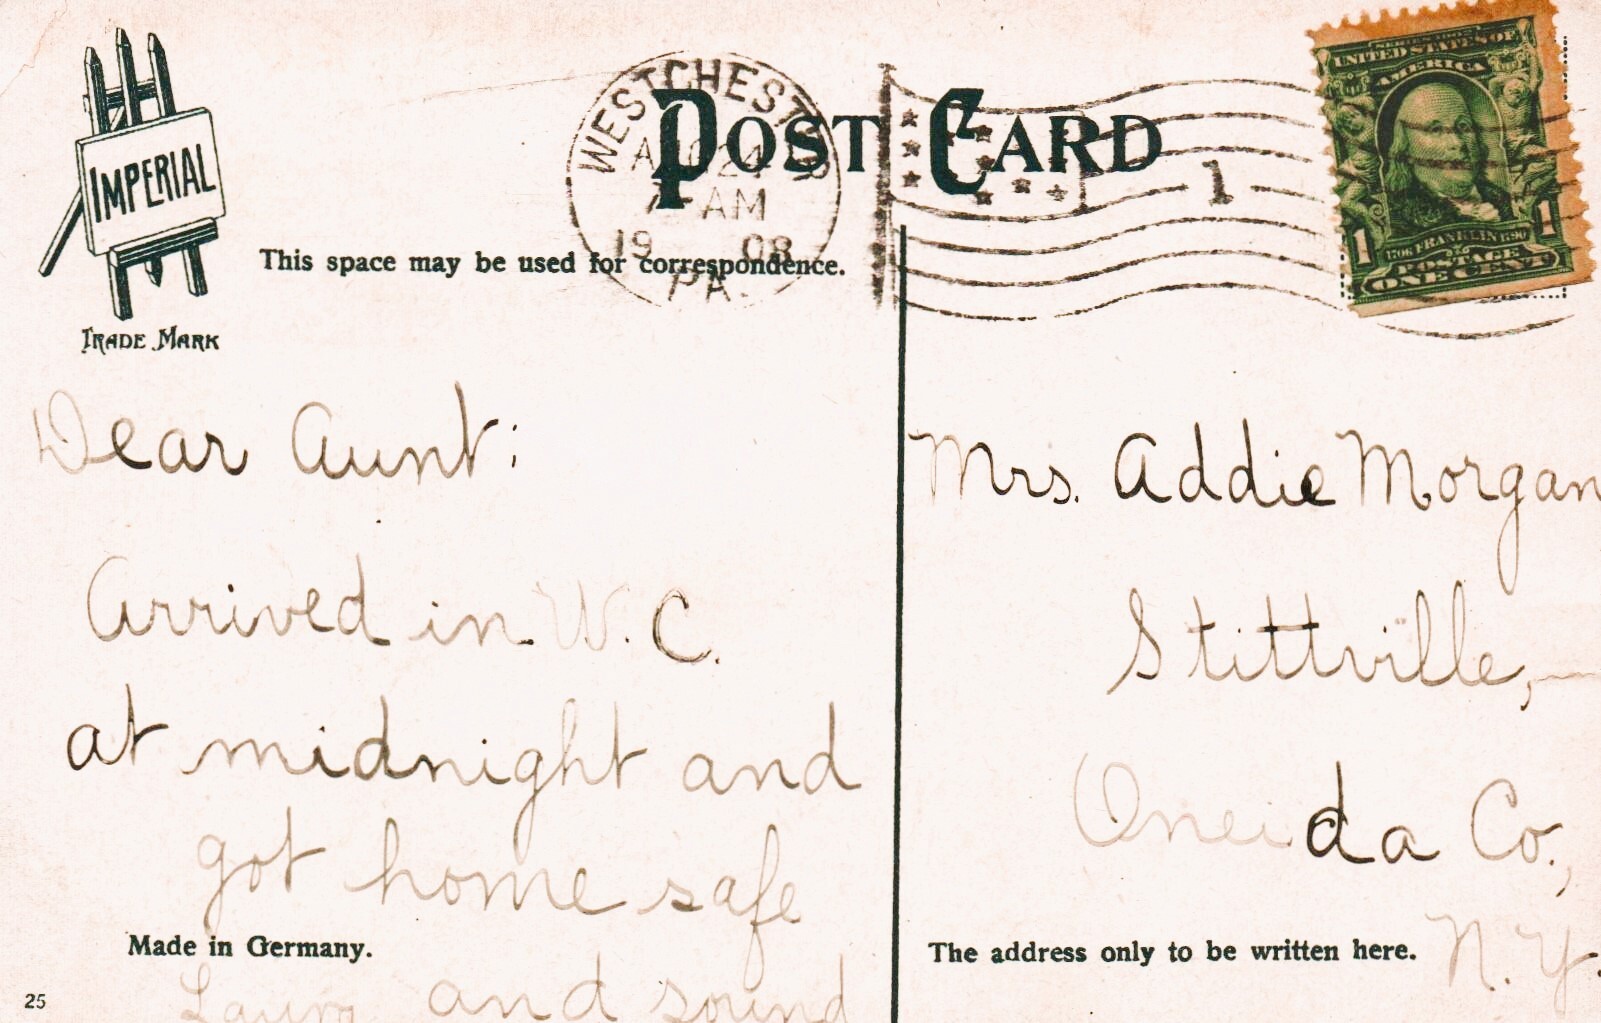 IMPERIAL
TRADE MARK
POST CARD
WESTCHESTER
24
AM
1908
PA.
1
UNITED STATES OF
AMERICA
1706 FRANKLIN 1790
1 1
POSTAGE
ONE CENT
This space may be used for correspondence.
Dear Aunt:
Arrived in W. C.
at midnight and
got home safe
and sound
Laura
Made in Germany.
25
Mrs. Addie Morgan
Stittville,
Oneida Co.,
N. Y.
The address only to be written here.